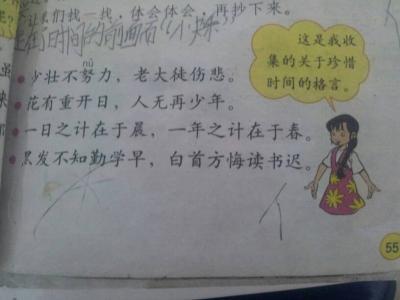 们找一找，体会体会，再抄下来。
时间的前面
这是我收
集的关于珍惜
时间的格言。
nǔ
少壮不努力，老大徒伤悲。
花有重开日，人无再少年。
一日之计在于晨，一年之计在于春。
黑发不知勤学早，白首方悔读书迟。
个
55